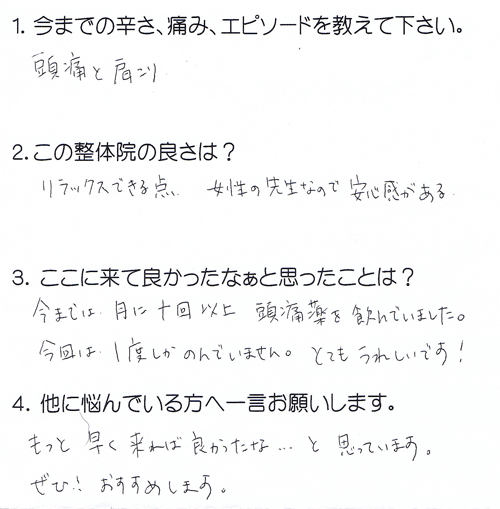 1. 今までの辛さ、痛み、エピソードを教えて下さい。
頭痛と肩こり
2.この整体院の良さは？
リラックスできる点、女性の先生なので安心感がある。
3. ここに来て良かったなぁと思ったことは？
今までは、月に十回以上 頭痛薬を飲んでいました。
今回は、1度しかのんでいません。とてもうれしいです！
4. 他に悩んでいる方へ一言お願いします。
もっと早く来れば良かったな…と思っています。
ぜひ！おすすめします。